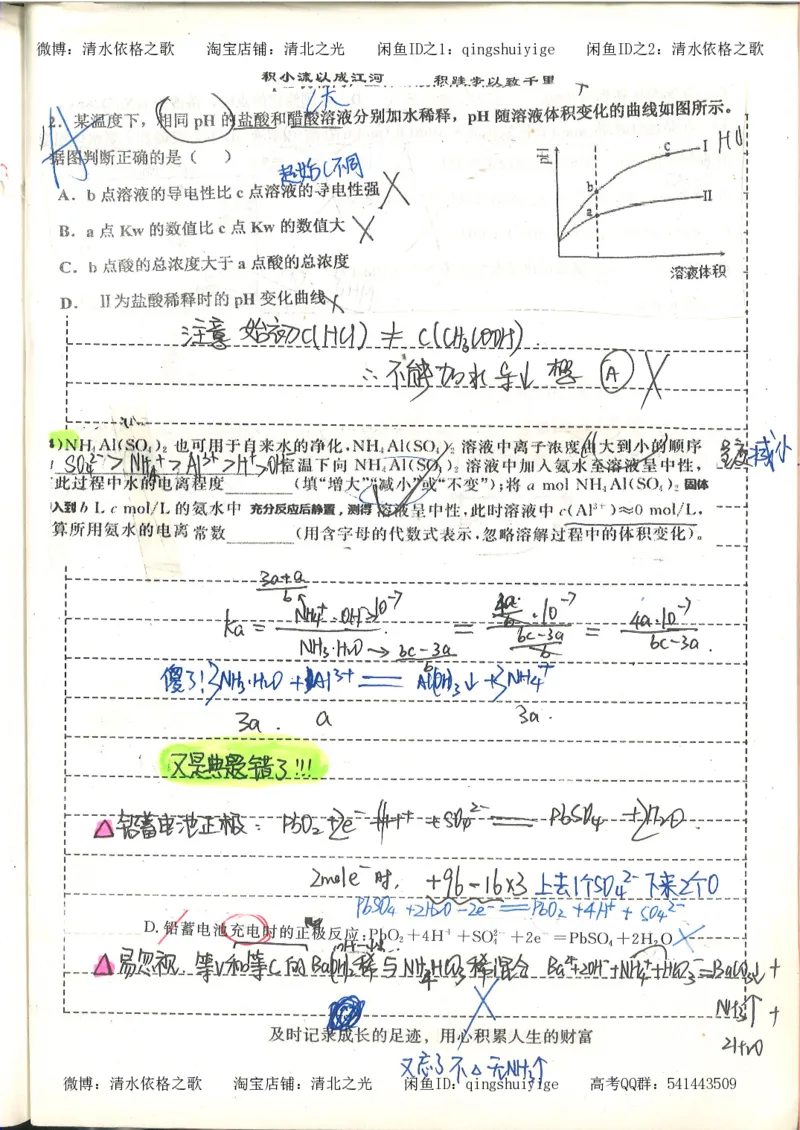 微博：清水依格之歌 淘宝店铺：清北之光 闲鱼ID之1：qingshuiyige 闲鱼ID之2：清水依格之歌
积小流以成江河 积跬步以致千里
2．某温度下，相同 pH 的盐酸和醋酸溶液分别加水稀释，pH 随溶液体积变化的曲线如图所示。
据图判断正确的是（ ）
起始C不同
A．b 点溶液的导电性比 c 点溶液的导电性强
B．a 点 Kw 的数值比 c 点 Kw 的数值大
C．b 点酸的总浓度大于 a 点酸的总浓度
D． Ⅱ为盐酸稀释时的 pH 变化曲线
pH
c
I
b
II
a
溶液体积
注意 始初C(HCl) ≠ C(CH₃COOH).
∴ 不能加水 导↓ 想 Ⓐ
)NH₄Al(SO₄)₂ 也可用于自来水的净化,NH₄Al(SO₄)₂ 溶液中离子浓度由大到小的顺序
SO₄²⁻>NH₄⁺>Al³⁺>H⁺>OH⁻室温下向 NH₄Al(SO₄)₂ 溶液中加入氨水至溶液呈中性，
减小
此过程中水的电离程度______(填“增大”“减小”或“不变”);将 a mol NH₄Al(SO₄)₂ 固体
入到 b L c mol/L 的氨水中 充分反应后静置，测得 溶液呈中性,此时溶液中 c(Al³⁺)≈0 mol/L，
算所用氨水的电离常数______(用含字母的代数式表示,忽略溶解过程中的体积变化)。
3a+a
b
Ka = NH₄⁺·OH⁻10⁻⁷ / NH₃·H₂O → bc-3a / b = 4a/b ·10⁻⁷ / bc-3a / b = 4a·10⁻⁷ / bc-3a .
傻了!3NH₃·H₂O + Al³⁺ == Al(OH)₃↓ + 3NH₄⁺
3a. a 3a.
又是典题错了!!!
铅蓄电池正极： PbO₂+2e⁻+4H⁺+SO₄²⁻ == PbSO₄ +2H₂O
2mole⁻时， +96-16×3 上去1个SO₄²⁻下来2个O
PbSO₄+2H₂O-2e⁻==PbO₂+4H⁺+SO₄²⁻
D. 铅蓄电池充电时的正极反应:PbO₂+4H⁺+SO₄²⁻+2e⁻=PbSO₄+2H₂O
易忽视. 等V和等C的Ba(OH)₂稀与NH₄HCO₃稀混合 Ba²⁺+2OH⁻+NH₄⁺+HCO₃⁻=BaCO₃↓+
NH₃↑+
2H₂O
及时记录成长的足迹，用心积累人生的财富
又忘了不△无NH₃↑
微博：清水依格之歌 淘宝店铺：清北之光 闲鱼ID：qingshuiyige 高考QQ群：541443509